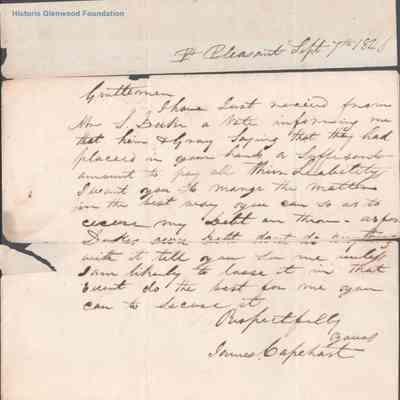 Historic Glenwood Foundation
P Pleasant Sept 7th 182
Gentlemen
I have Just received from
Mr S. a Note informing me
that him & Gray Saying that they had
placed in your hands a Suffisent
amount to pay all their Liability
I want you to mange the matter
in the best way you can so as to
secure my debt on them as for
debt dont do any thing
with it tell you See me unless
I am likely to loose it in that
Event do the best for me you
can to Secure it
Respectfully
Yours
James Capehart